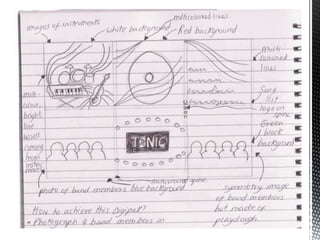 images of instruments
white background
multicoloured lines
Red background
multi
coloured
lines
Song
list
logo on
spine
Green
/ black
background
multi
colour
bright
line
waves
coming
from
instruments
TONIC
multicoloured spine
photo of band members blue background
symmetry image
of band members
but made of
playdough.
How to achieve this Digipak?
• Photograph 4 band members in